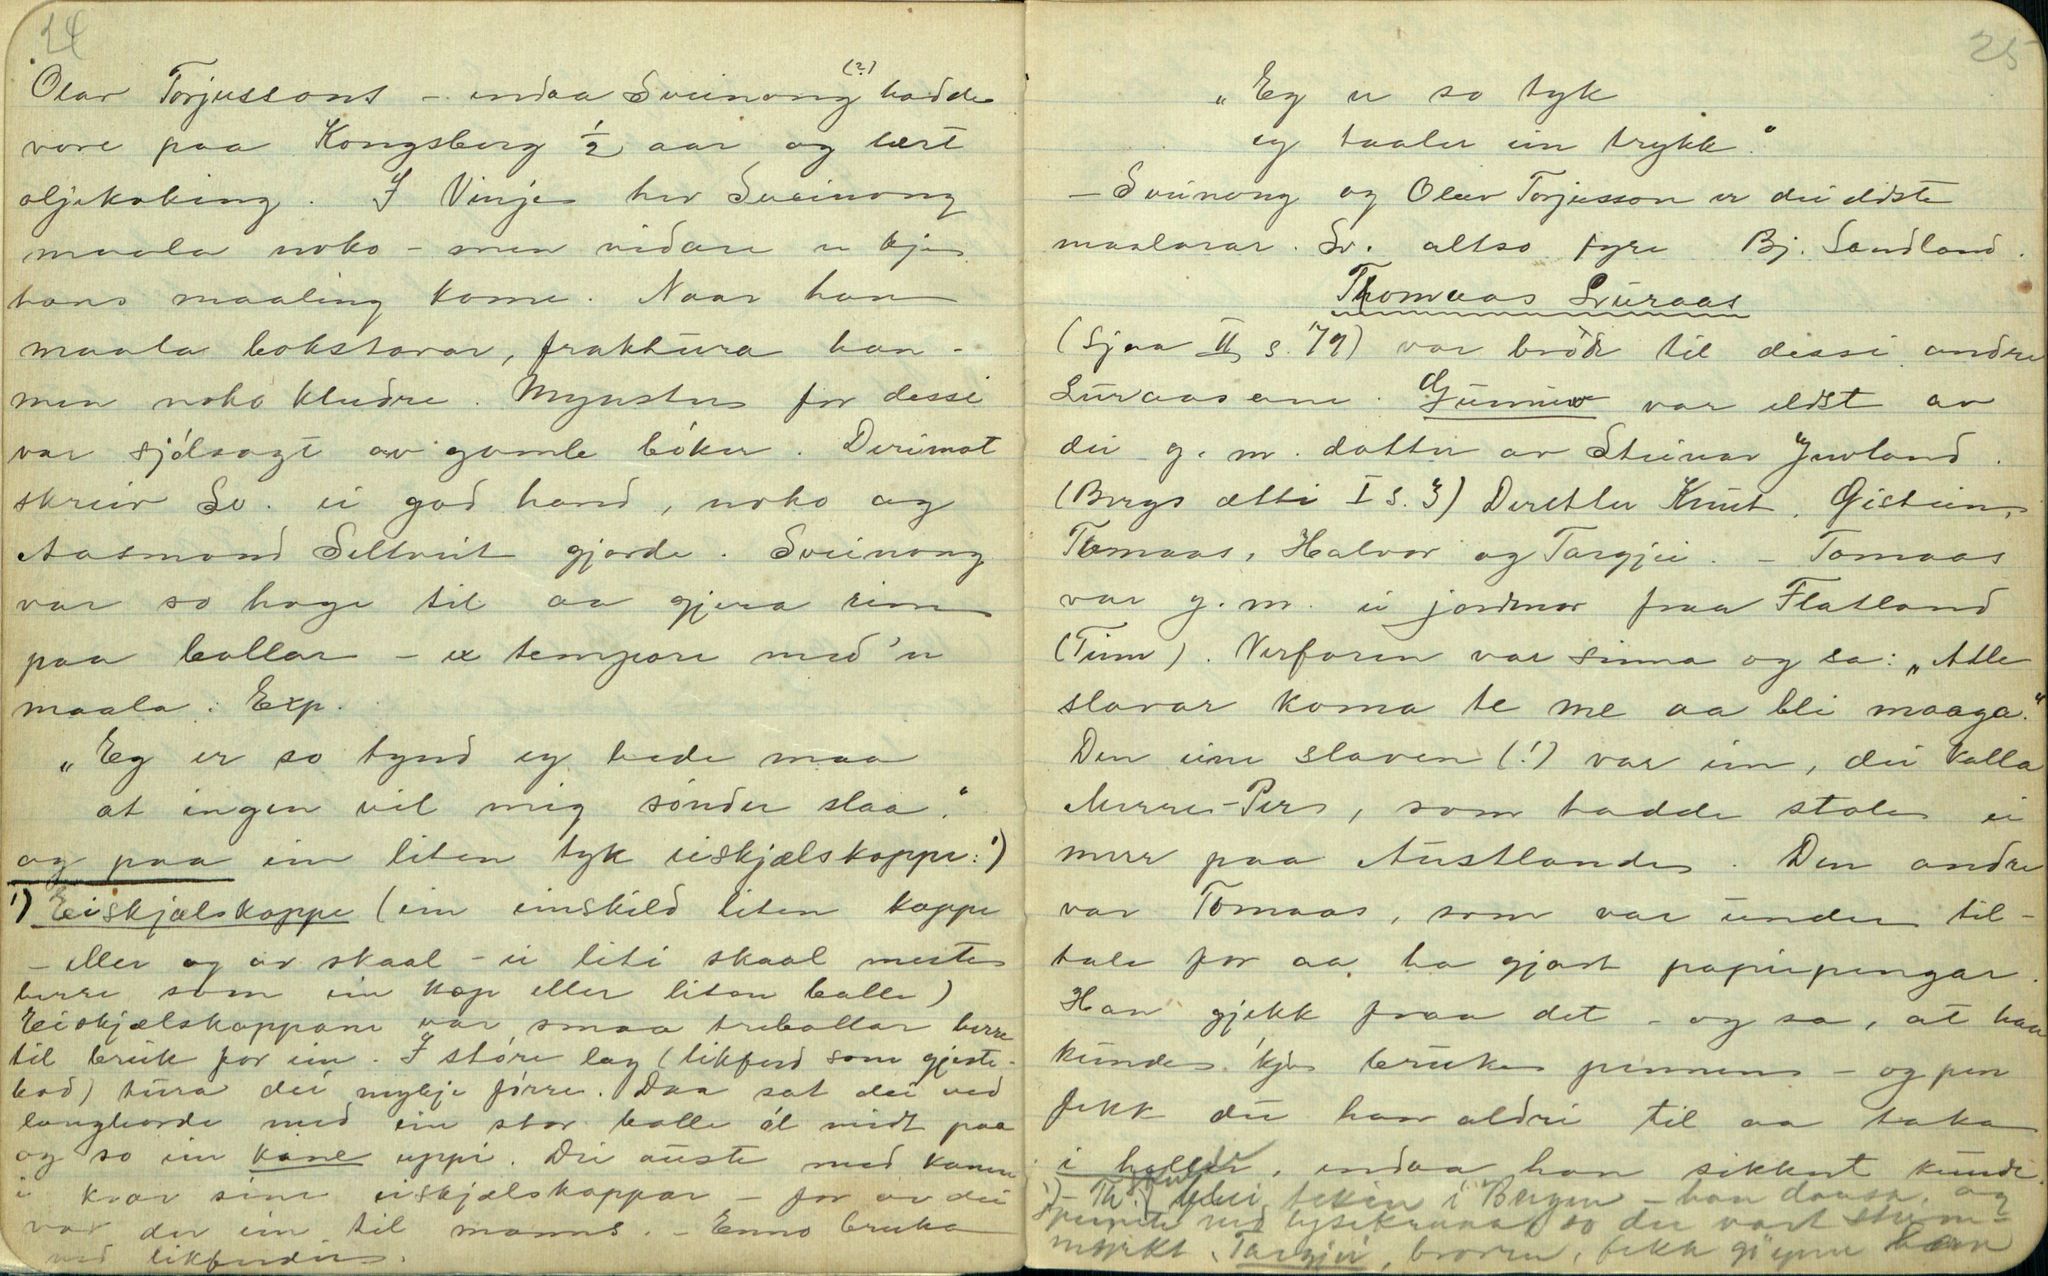 24
Olav Torjussons – endaa Sveinong (?) hadde
vore paa Kongsberg ½ aar og lært
oljekoking. I Vinje hev Sveinong
maala noko – men vidare er kje
hans maaling kome. Naar han
maala bokstavar, fraktura han –
men noko kludre. Mynster for dessi
var sjólsagt av gamle bóker. Derimot
skreiv Sv. ei god hand, noko og
Aasmond Seltveit gjorde. Sveinong
var so hage til aa gjera rim
paa bollar – ex tempore med 'n
maala. Exp.
„Eg er so tynd eg bede maa
at ingen vil mig sónder slaa."
og paa ein liten tyk eiskjælskoppe: 1)
1) Eiskjælskoppe (ein einskild liten koppe
– eller og av skaal – ei liti skaal meste
berre som ein kop eller liten bolle)
Eiskjælskoppane var smaa trebollar berre
til bruk for ein. I stóre lag (likferd som gjeste-
bod) tura dei mykje fórre. Daa sat dei ved
langborde med ein stor bolle ól midt paa
og so ein kane uppi. Dei auste med kanen
i kvar sine eiskjælskoppar – for av dei
var der ein til manns. – Enno bruka
ved likferder.
25
„Eg er so tyk
eg taaler ein trykk."
– Sveinong og Olav Torjusson er dei eldste
maalarar. Sv. altso fyre Bj. Sandland.
Thomaas Luraas
(Sjaa II s. 79) var broer til dessi andre
Luraasane. Gunnar var eldst av
dei g. m. dotter av Steinar Juvland.
(Bergs ætti I s. 3) Deretter Knut, Øistein,
Tomaas, Halvor og Targjei. – Tomaas
var g. m. ei jordmor fraa Flatland
(Tinn). Verfaren var sinna og sa: „Alle
slavar koma te me aa bli maaga."
Den eine slaven (!) var ein, dei kalla
Merre-Per, som hadde stole ei
merr paa Austlande. Den andre
var Tomaas, som var under til-
tale for aa ha gjort papirpengar.
Han gjekk fraa det – og sa, at han
kunde kje bruke pennen – og pen
fekk dei han aldri til aa taka
i helder, endaa han sikkert kunde.
1) – Th. blei teken i Bergen – han dansa, og
spente ned lysekruna so der vart stum-
myrkt. Targjei, broren, fekk gjenne han